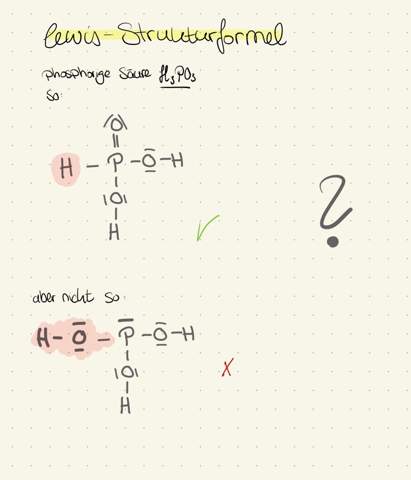 Lewis-Strukturformel
phosphorige Säure H₃PO₃
so:
|O|
||
H – P – O – H
|
|O|
|
H
✓
?
aber nicht so:
H – O – P – O – H
|
|O|
|
H
X